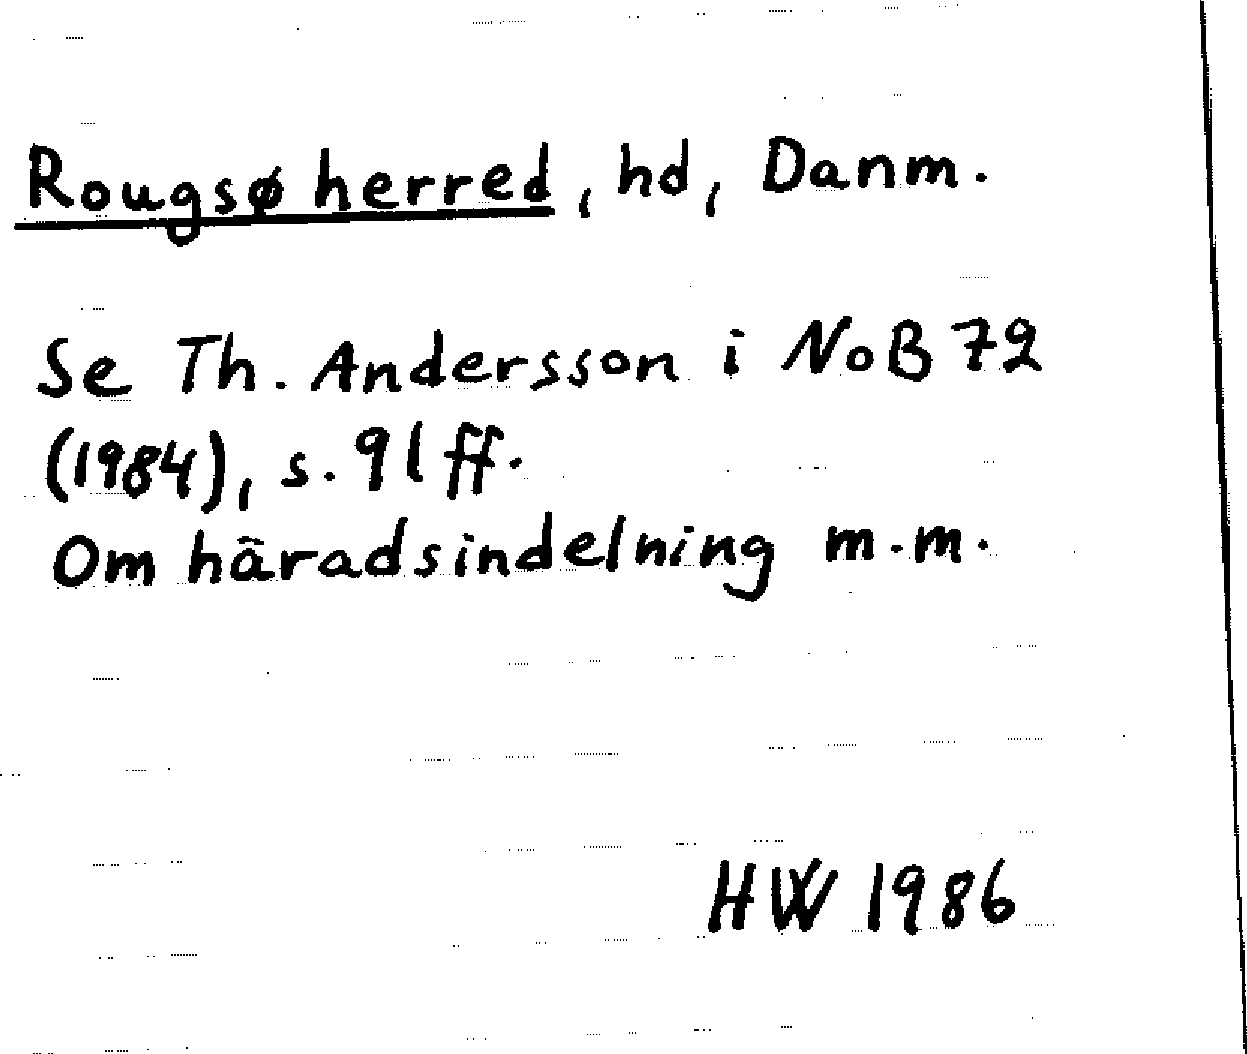 Rougsø herred, hd, Danm.
Se Th. Andersson i NoB 72
(1984), s. 91 ff.
Om häradsindelning m.m.
HW 1986